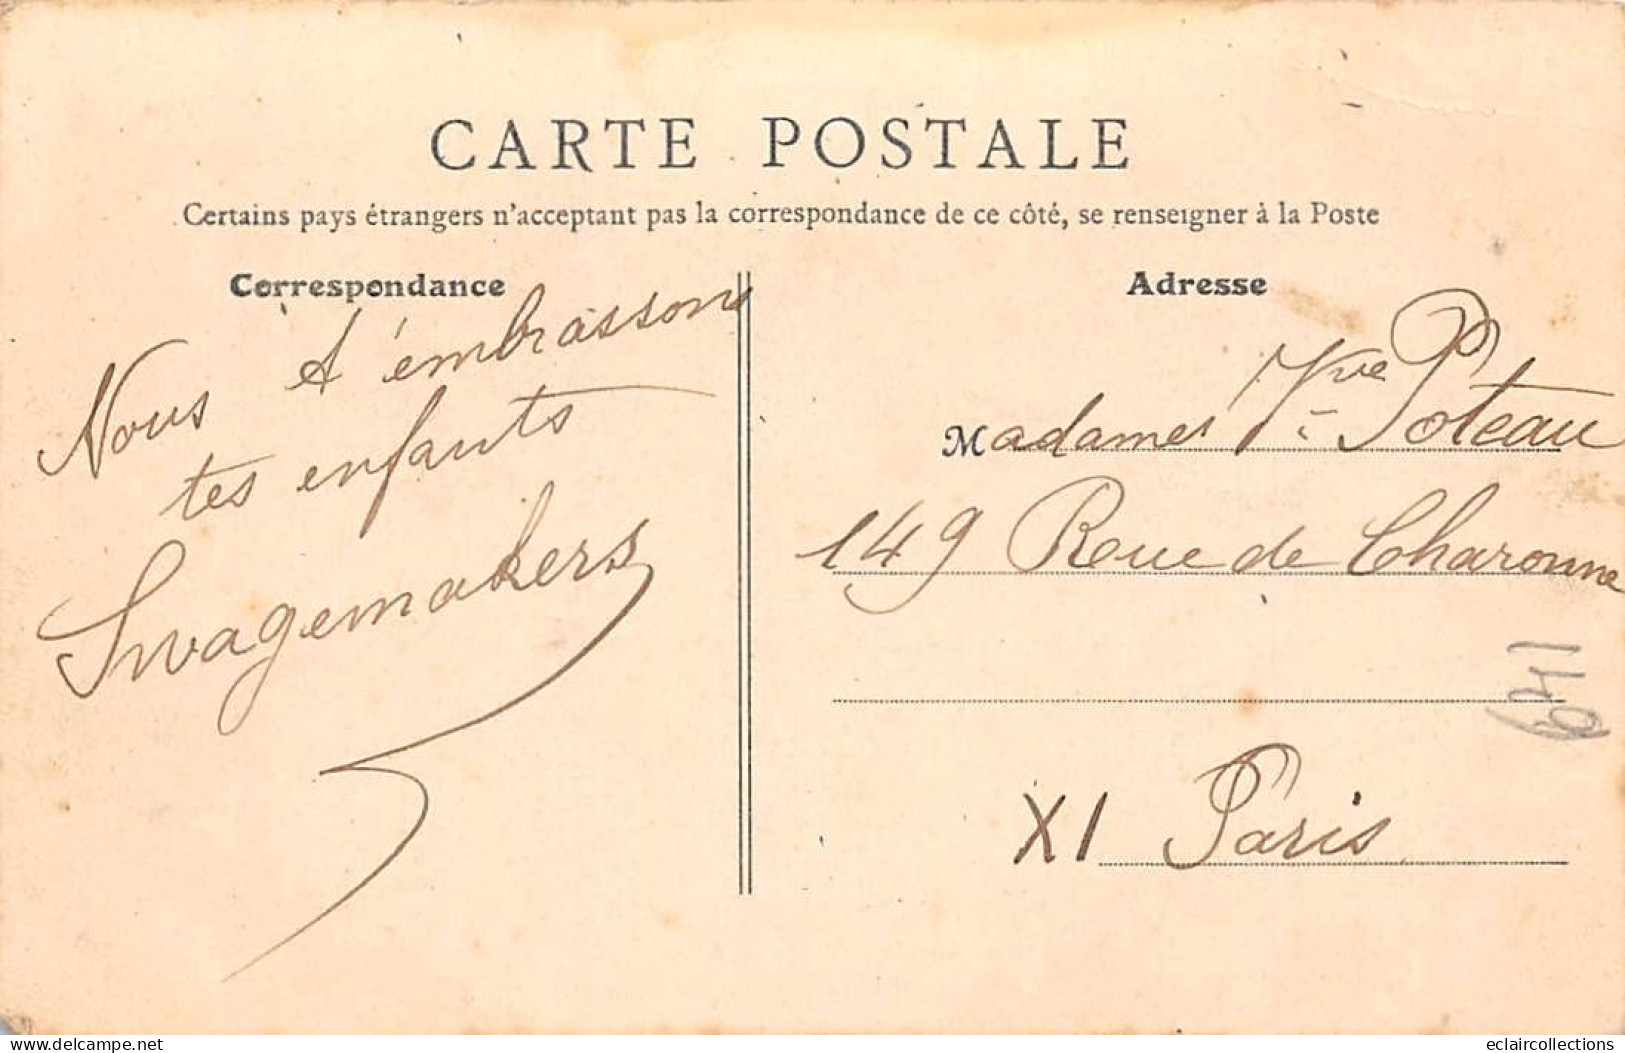 CARTE POSTALE
Certains pays étrangers n'acceptant pas la correspondance de ce côté, se renseigner à la Poste
Correspondance
Nous t'embrassons
tes enfants
Swagemakers
Adresse
Madame Vve Poteau
149 Rue de Charonne
641
XI Paris
delcampe.net
eclaircollections